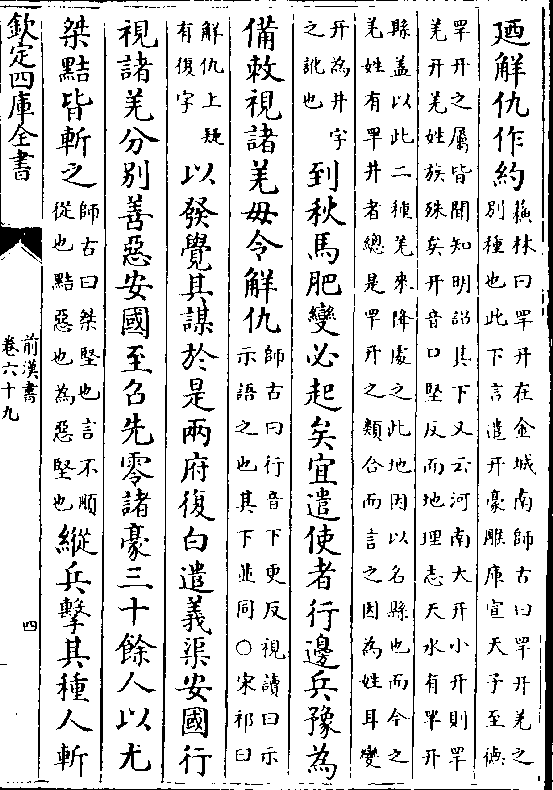 廼解仇作約蘇林曰䍐幵在金城南師古曰䍐幵羌之別種也此下言遣幵豪雕庫宣天子至德
䍐幵之屬皆聞知明詔其下又云河南大幵小幵則䍐羌幵羌姓族殊矣幵音口堅反而地理志天水有䍐幵
縣盖以此二種羌來降處之此地因以名縣也而今之羌姓有䍐井者總是䍐幵之類合而言之因為姓耳變
幵為井字之訛也到秋馬肥變必起矣宜遣使者行邊兵豫為
備敕視諸羌毋令解仇師古曰行音下更反視讀曰示示語之也其下並同○宋祁曰
解仇上疑有復字以發覺其謀於是兩府復白遣義渠安國行
視諸羌分別善惡安國至召先零諸豪三十餘人以尤
桀黠皆斬之師古曰桀堅也言不順從也黠惡也為惡堅也縱兵擊其種人斬
欽定四庫全書
前漢書
卷六十九
四